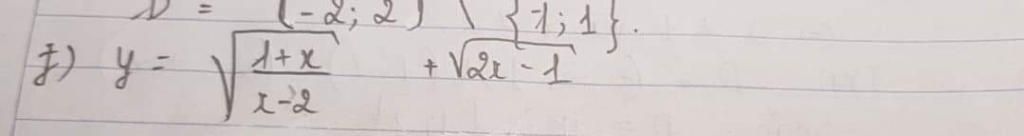 D = (-2; 2) \ {-1; 1}.
f) y = √((1+x)/(x-2)) + √(2x-1)